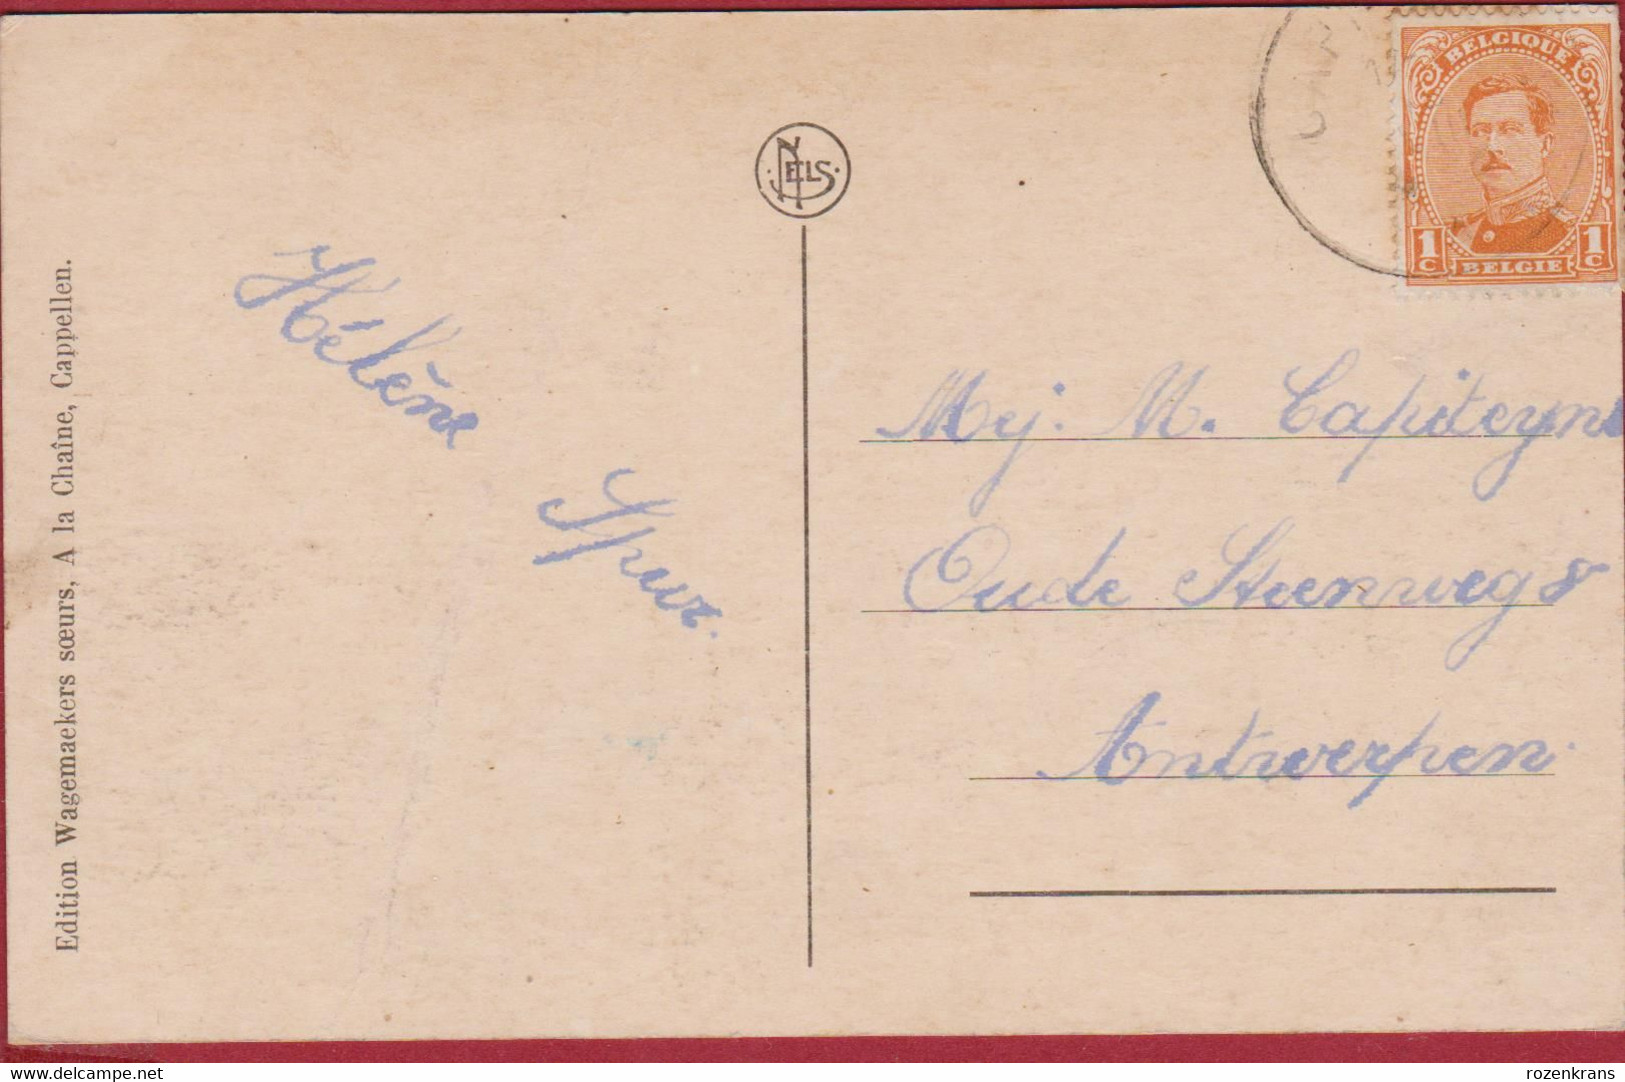 Edition Wagemaekers sœurs, A la Chaîne, Cappellen.
NELS
BELGIQUE
1C 1C
BELGIE
Hélène
Spur.
Mej. M. Capiteyns
Oude Steenweg 8
Antwerpen.
www.delcampe.net
rozenkrans